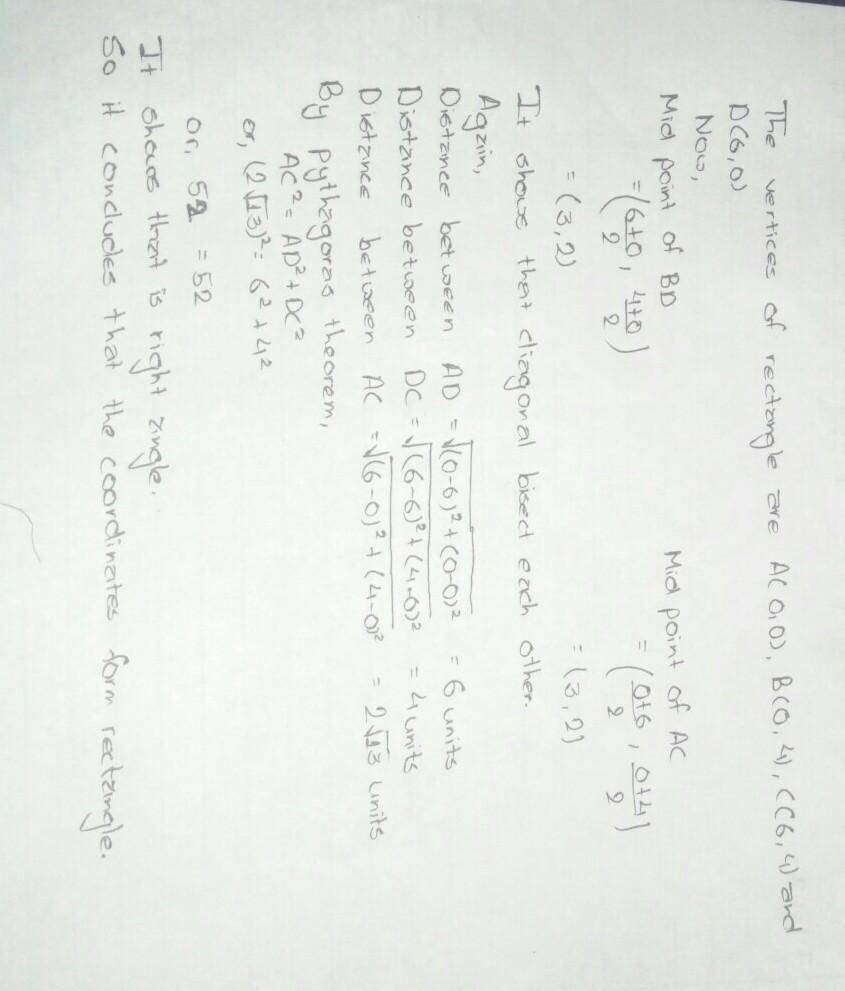 The vertices of rectangle are A(0,0), B(0,4), C(6,4) and
D(6,0)
Now,
Mid point of BD Mid point of AC
= (6+0/2, 4+0/2) = (0+6/2, 0+4/2)
= (3,2) = (3,2)
It shows that diagonal bisect each other.
Again,
Distance between AD = √(0-6)²+(0-0)² = 6 units
Distance between DC = √(6-6)²+(4-0)² = 4 units
Distance between AC = √(6-0)²+(4-0)² = 2√13 units
By pythagoras theorem,
AC² = AD²+DC²
or, (2√13)² = 6²+4²
or, 52 = 52
It shows that is right angle.
So it concludes that the coordinates form rectangle.